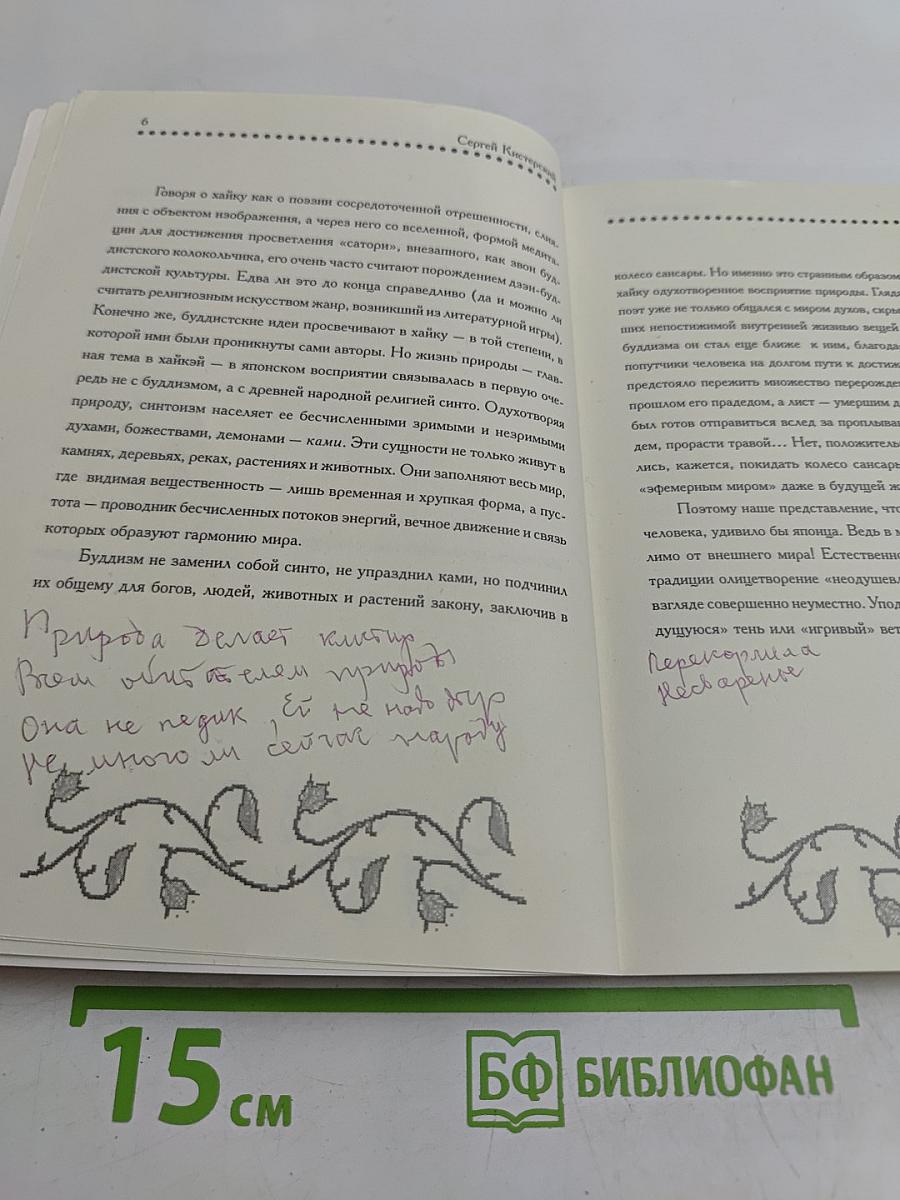 6
Сергей Кистерский
Говоря о хайку как о поэзии сосредоточенной отрешенности, слия-
ния с объектом изображения, а через него со вселенной, формой медита-
ции для достижения просветления «сатори», внезапного, как звон буд-
дистского колокольчика, его очень часто считают порождением дзэн-буд-
дистской культуры. Едва ли это до конца справедливо (да и можно ли
считать религиозным искусством жанр, возникший из литературной игры).
Конечно же, буддистские идеи просвечивают в хайку — в той степени, в
которой ими были проникнуты сами авторы. Но жизнь природы — глав-
ная тема в хайкэй — в японском восприятии связывалась в первую оче-
редь не с буддизмом, а с древней народной религией синто. Одухотворяя
природу, синтоизм населяет ее бесчисленными зримыми и незримыми
духами, божествами, демонами — ками. Эти сущности не только живут в
камнях, деревьях, реках, растениях и животных. Они заполняют весь мир,
где видимая вещественность — лишь временная и хрупкая форма, а пус-
тота — проводник бесчисленных потоков энергий, вечное движение и связь
которых образуют гармонию мира.
Буддизм не заменил собой синто, не упразднил ками, но подчинил
их общему для богов, людей, животных и растений закону, заключив в
Природа делает клистир
Всем обитателям природы
Она не педик, ей не надо дыр
Не много ли сейчас народу
колесо сансары. Но именно это странным образом
хайку одухотворенное восприятие природы. Гляд
поэт уже не только общался с миром духов, скры
ших непостижимой внутренней жизнью вещей
буддизма он стал еще ближе к ним, благода
попутчики человека на долгом пути к достиж
предстояло пережить множество перерожде
прошлом его прадедом, а лист — умершим д
был готов отправиться вслед за проплыва
дем, прорасти травой... Нет, положитель
лись, кажется, покидать колесо сансар
«эфемерным миром» даже в будущей ж
Поэтому наше представление, что
человека, удивило бы японца. Ведь в м
лимо от внешнего мира! Естественно
традиции олицетворение «неодушевл
взгляде совершенно неуместно. Упод
дущуюся» тень или «игривый» вет
Перекормила
Несваренье
15 см
БФ БИБЛИОФАН